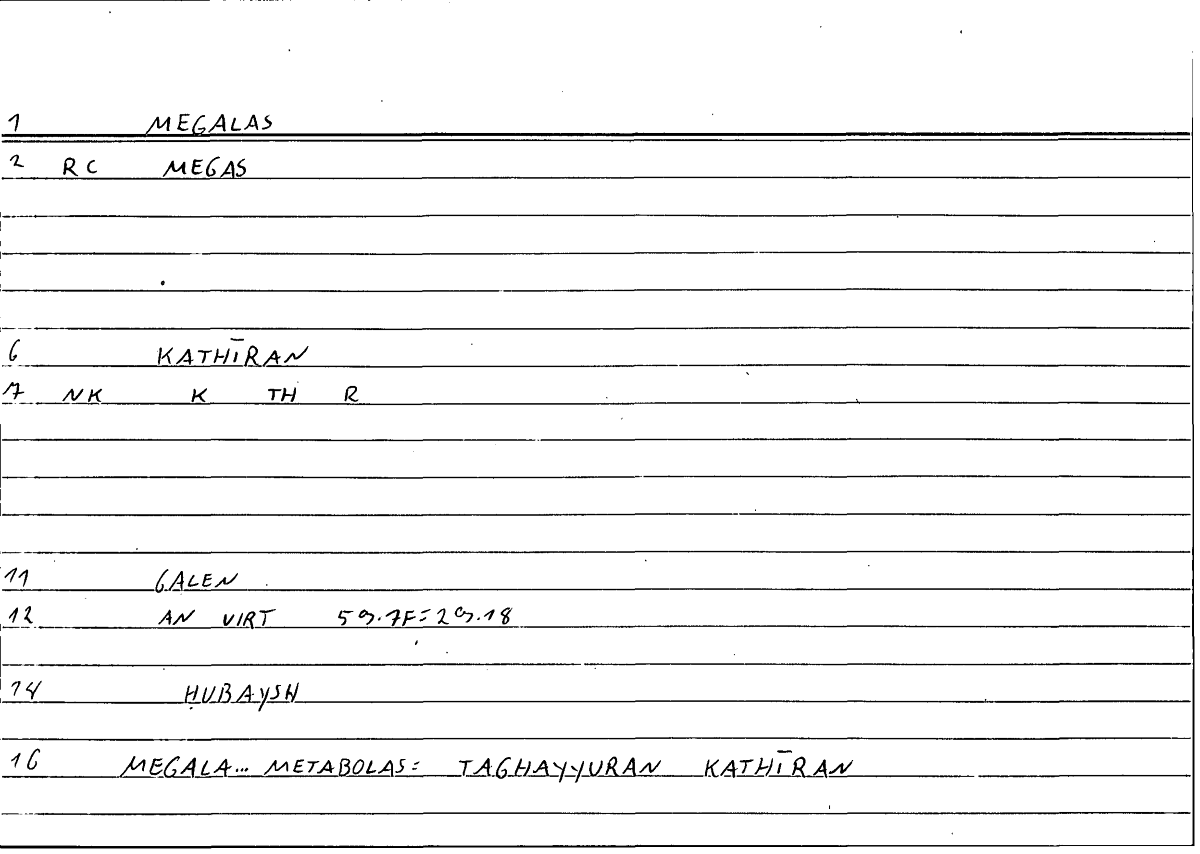 1 MEGALAS
2 RC MEGAS
6 KATHĪRAN
7 NK K TH R
11 GALEN
12 AN VIRT 59.7F=29.18
14 ḤUBAYSH
16 MEGALA... METABOLAS= TAGHAYYURAN KATHĪRAN